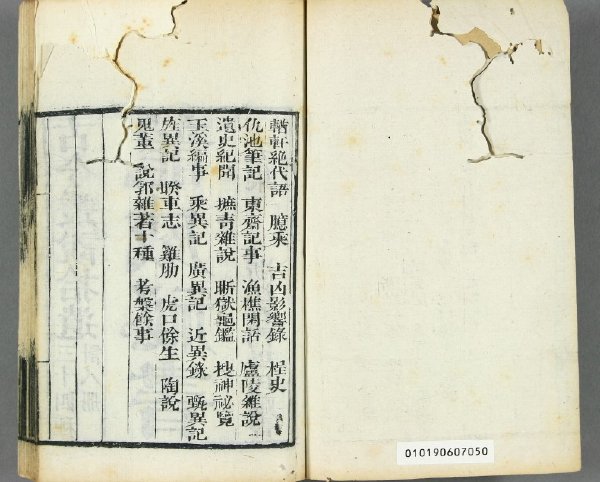 輶軒絶代語　臆乘　吉凶影響錄　桯史
仇池筆記　東齋記事　漁樵閑話　盧陵雜說
遺史紀聞　摭青雜說　晰獄龜鑑　搜神祕覽
玉溪編事　乘異記　廣異記　近異錄　甄異記
旌異記　睽車志　雞肋　虎口餘生　陶說
鬼董　說郛雜著十種　考槃餘事
010190607050